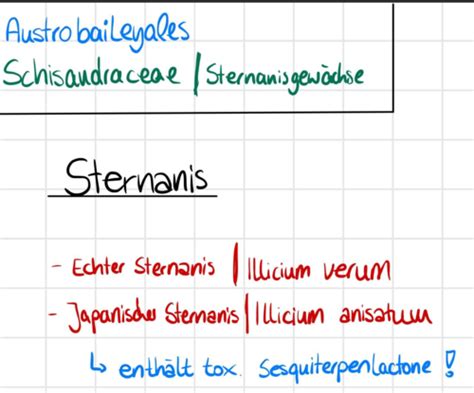 Austrobaileyales
Schisandraceae | Sternanisgewächse
Sternanis
- Echter Sternanis | Illicium verum
- Japanischer Sternanis | Illicium anisatum
↳ enthält tox. Sesquiterpenlactone !